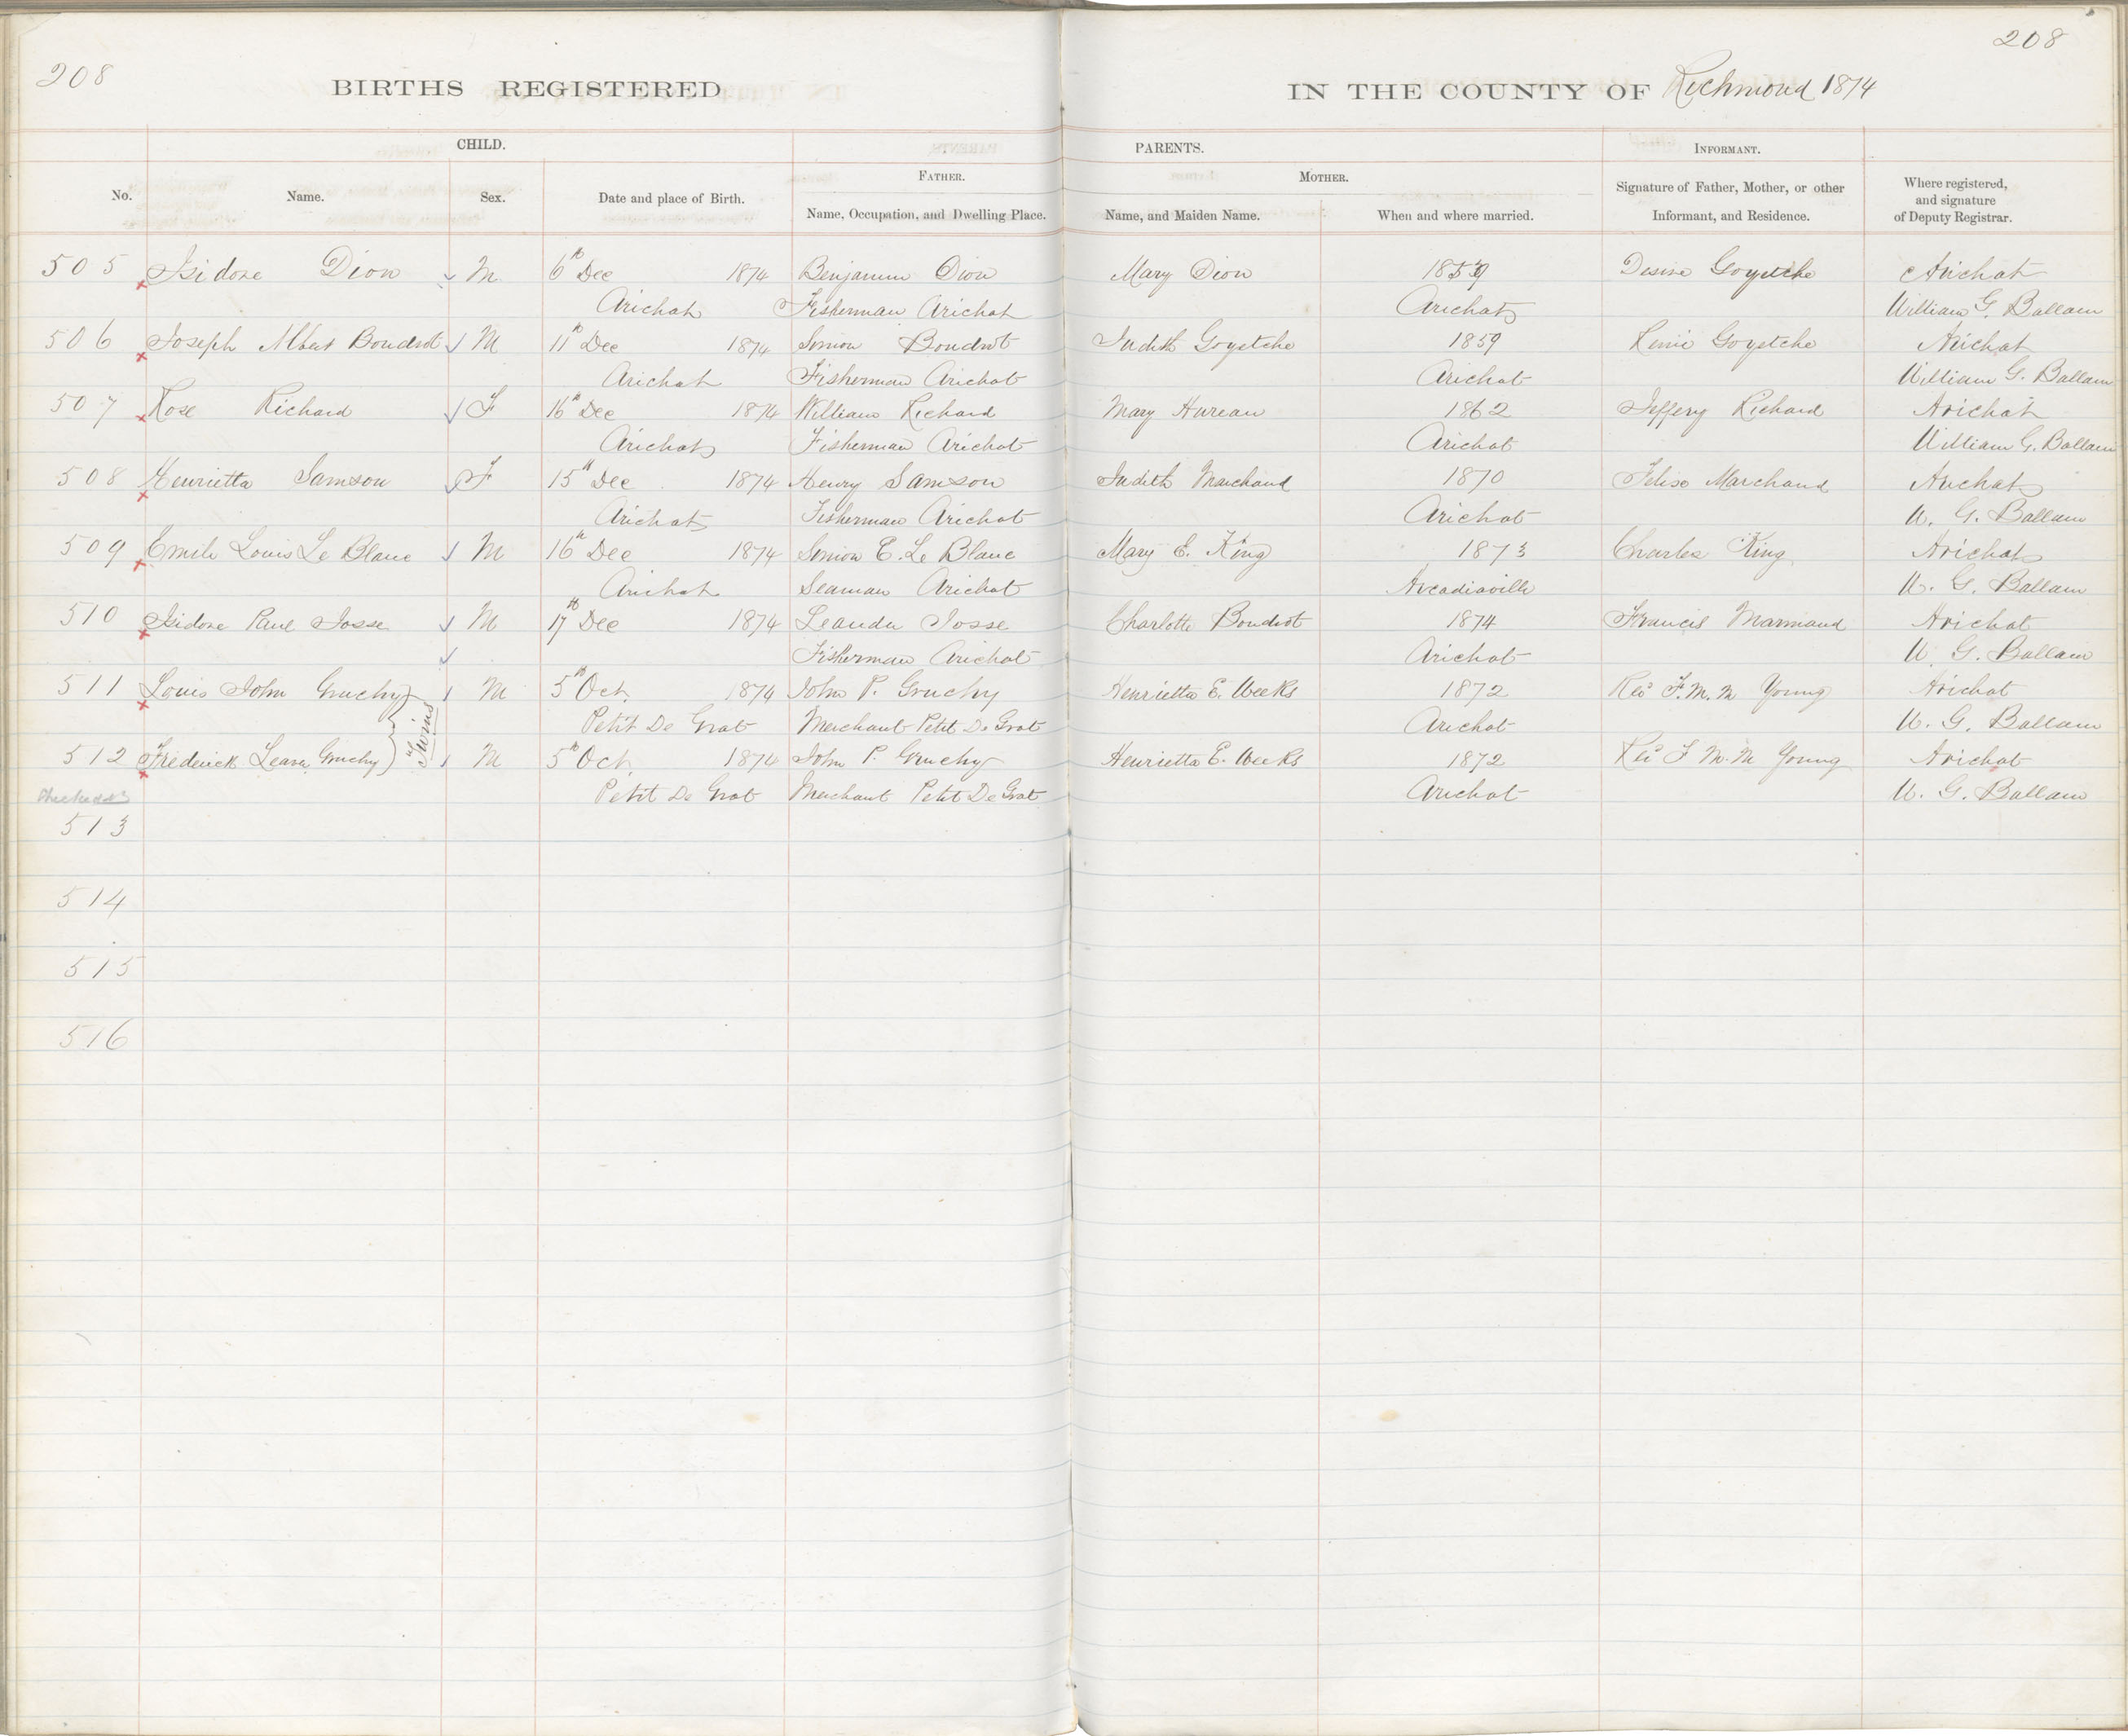 208 208
BIRTHS REGISTERED IN THE COUNTY OF Richmond 1874
CHILD. PARENTS. INFORMANT.
FATHER. MOTHER.
No. Name. Sex. Date and place of Birth. Name, Occupation, and Dwelling Place. Name, and Maiden Name. When and where married. Signature of Father, Mother, or other Informant, and Residence. Where registered, and signature of Deputy Registrar.
505 Isidore Dion M 6th Dec 1874 Benjamin Dion Mary Dion 1859 Desire Goyetche Arichat
Arichat Fisherman Arichat Arichat William G. Ballam
506 Joseph Albert Boudrot M 11th Dec 1874 Simon Boudrot Judith Goyetche 1859 Goyetche Arichat
Arichat Fisherman Arichat Arichat William G. Ballam
507 Rose Richard F 16th Dec 1874 William Richard Mary Hureau 1862 Jeffery Richard Arichat
Arichat Fisherman Arichat Arichat William G. Ballam
508 Henrietta Samson F 15th Dec 1874 Henry Samson Judith Marchand 1870 Marchand Arichat
Arichat Fisherman Arichat Arichat W. G. Ballam
509 Emile Louis Le Blanc M 16th Dec 1874 Simon E. Le Blanc Mary E. King 1873 Charles King Arichat
Arichat Seaman Arichat Arcadiaville W. G. Ballam
510 Isidore Paul Josse M 17th Dec 1874 Leander Josse Charlotte Boudrot 1874 Francis Marmaud Arichat
Fisherman Arichat Arichat W. G. Ballam
511 Louis John Gruchy M 5th Oct 1874 John P. Gruchy Henrietta E. Weeks 1872 Revd F. M. M Young Arichat
Twins
Petit De Grat Merchant Petit De Grat Arichat W. G. Ballam
512 Frederick Gruchy M 5th Oct 1874 John P. Gruchy Henrietta E. Weeks 1872 Revd F M. M Young Arichat
Petit De Grat Merchant Petit De Grat Arichat W. G. Ballam
513
514
515
516